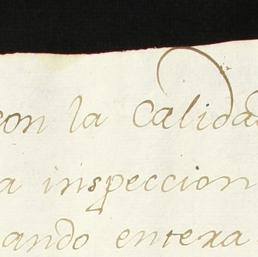 con la Calidad
a inspeccion
ando entera